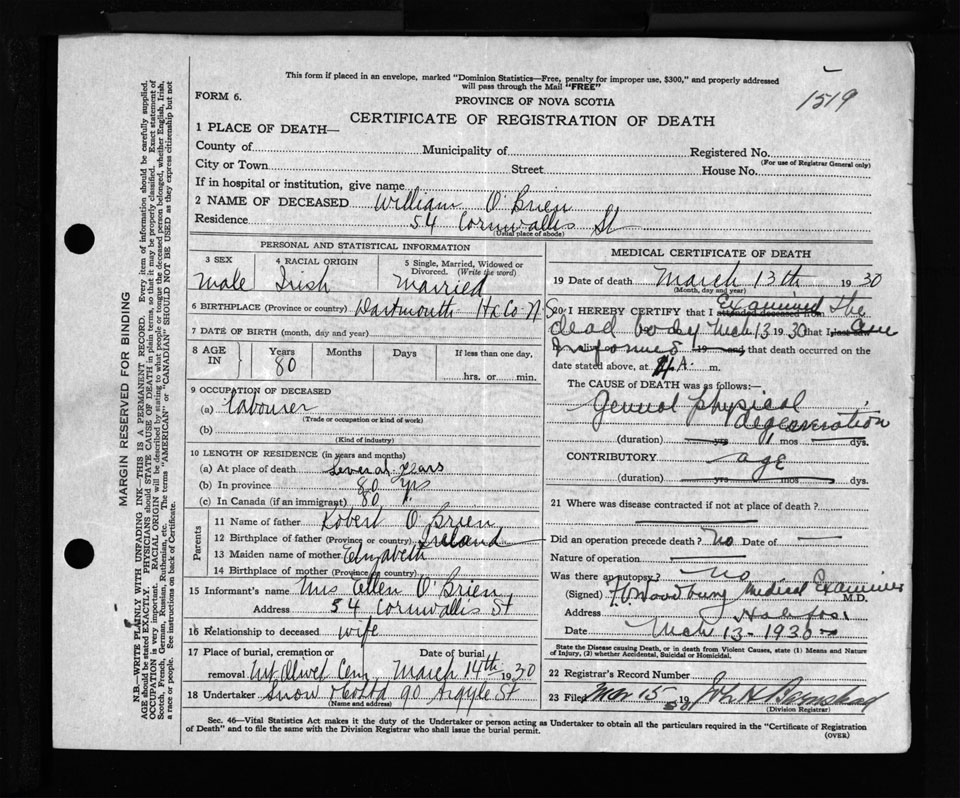 This form if placed in an envelope, marked "Dominion Statistics—Free, penalty for improper use, $300," and properly addressed
will pass through the Mail "FREE"
FORM 6.
PROVINCE OF NOVA SCOTIA
1519
CERTIFICATE OF REGISTRATION OF DEATH
1 PLACE OF DEATH—
County of Municipality of Registered No.
(For use of Registrar General only)
City or Town Street House No.
If in hospital or institution, give name
2 NAME OF DECEASED William O'Brien
Residence 54 Cornwallis St
(Usual place of abode)
PERSONAL AND STATISTICAL INFORMATION
3 SEX 4 RACIAL ORIGIN 5 Single, Married, Widowed or
Divorced. (Write the word)
Male Irish Married
6 BIRTHPLACE (Province or country) Dartmouth Hx Co N S
7 DATE OF BIRTH (month, day and year)
8 AGE IN Years Months Days If less than one day,
80 hrs. or min.
9 OCCUPATION OF DECEASED
(a) Labourer
(Trade or occupation or kind of work)
(b)
(Kind of industry)
10 LENGTH OF RESIDENCE (in years and months)
(a) At place of death Several Years
(b) In province 80 yrs
(c) In Canada (if an immigrant) 80
Parents
11 Name of father Robert O'Brien
12 Birthplace of father (Province or country) Ireland
13 Maiden name of mother Elizabeth
14 Birthplace of mother (Province or country)
15 Informant's name Mrs Ellen O'Brien
Address 54 Cornwallis St
16 Relationship to deceased wife
17 Place of burial, cremation or Date of burial
removal Mt Olivet Cem March 14th 1930
18 Undertaker Snow & Co Ltd 90 Argyle St
(Name and address)
MEDICAL CERTIFICATE OF DEATH
19 Date of death March 13th 1930
(Month, day and year)
20 I HEREBY CERTIFY that I attended deceased from Examined the
dead body Mch 13 1930 that I last saw
informed 19 and that death occurred on
date stated above, at 4 A. m.
The CAUSE OF DEATH was as follows:—
General physical
degeneration
(duration) yrs mos dys.
CONTRIBUTORY age
(duration) yrs. mos. dys.
21 Where was disease contracted if not at place of death?
Did an operation precede death? No Date of
Nature of operation
Was there an autopsy? no
(Signed) Medical Examiner M.D.
Address Halifax
Date Mch 13-1930
State the Disease causing Death, or in death from Violent Causes, state (1) Means and Nature
of Injury, (2) whether Accidental, Suicidal or Homicidal.
22 Registrar's Record Number
23 Filed Mar 15 1930
(Division Registrar)
Sec. 46—Vital Statistics Act makes it the duty of the Undertaker or person acting as Undertaker to obtain all the particulars required in the "Certificate of Registration
of Death" and to file the same with the Division Registrar who shall issue the burial permit.
(OVER)
MARGIN RESERVED FOR BINDING
N.B.—WRITE PLAINLY WITH UNFADING INK—THIS IS A PERMANENT RECORD. Every item of information should be carefully supplied.
AGE should be stated EXACTLY. PHYSICIANS should STATE CAUSE OF DEATH in plain terms, so that it may be properly classified. Exact statement of
OCCUPATION is very important. RACIAL ORIGIN will be described by stating to what people or tongue the deceased person belonged, whether English, Irish,
Scotch, French, German, Russian, Ruthenian, etc. The terms "AMERICAN" or "CANADIAN" SHOULD NOT BE USED as they express citizenship but not
a race or people. See instructions on back of Certificate.